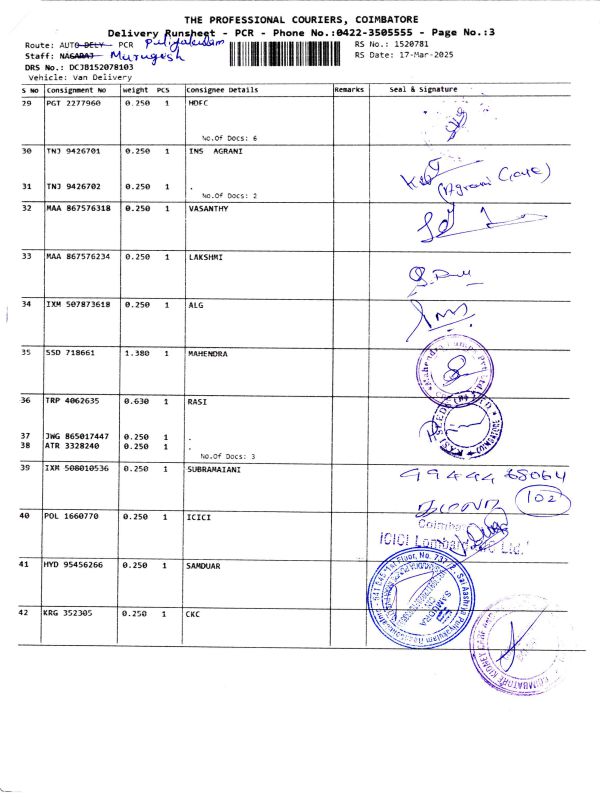 THE PROFESSIONAL COURIERS, COIMBATORE
Delivery Runsheet - PCR - Phone No.:0422-3505555 - Page No.:3
Route: AUTO DELY PCR RS No.: 1520781
Staff: NAGARAJ Murugesh RS Date: 17-Mar-2025
DRS No.: DCJB152078103
Vehicle: Van Delivery
S No Consignment No Weight PCS Consignee Details Remarks Seal & Signature
29 PGT 2277960 0.250 1 HDFC
No.Of Docs: 6
30 TNJ 9426701 0.250 1 INS AGRANI
31 TNJ 9426702 0.250 1 .
No.Of Docs: 2
(Agrani
32 MAA 867576318 0.250 1 VASANTHY
33 MAA 867576234 0.250 1 LAKSHMI
34 IXM 507873618 0.250 1 ALG
35 SSD 718661 1.380 1 MAHENDRA
36 TRP 4062635 0.630 1 RASI
37 JWG 865017447 0.250 1 .
38 ATR 3328240 0.250 1 .
No.Of Docs: 3
39 IXM 508010536 0.250 1 SUBRAMAIANI
102
40 POL 1660770 0.250 1 ICICI
ICICI Lombard Ltd.
41 HYD 95456266 0.250 1 SAMDUAR
42 KRG 352305 0.250 1 CKC